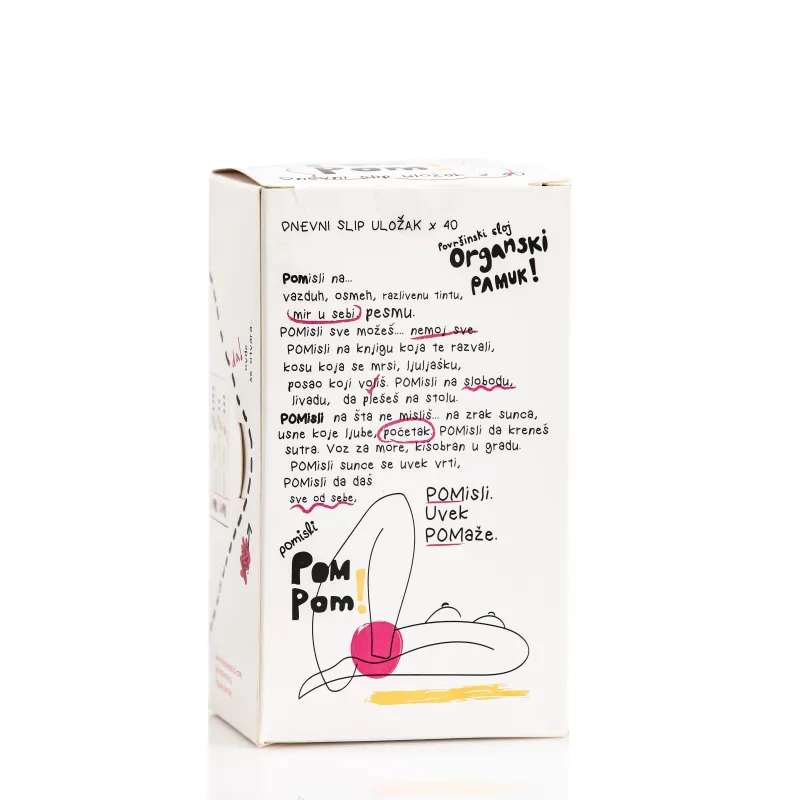 Pom!
Dnevni slip uložak x 40
DNEVNI SLIP ULOŽAK x 40
Površinski sloj
Organski
PAMUK!
POMisli na...
vazduh, osmeh, razlivenu tintu,
mir u sebi, pesmu.
POMisli sve možeš.... nemoj sve.
POMisli na knjigu koja te razvali,
kosu koja se mrsi, ljuljašku,
posao koji voliš. POMisli na slobodu,
livadu, da plešeš na stolu.
POMisli na šta ne misliš... na zrak sunca,
usne koje ljube, početak. POMisli da kreneš
sutra. Voz za more, kisobran u gradu.
POMisli sunce se uvek vrti,
POMisli da daš
sve od sebe,
POMisli.
Uvek
POMaže.
pomisli
POM
Pom!
ovde
se otvara...